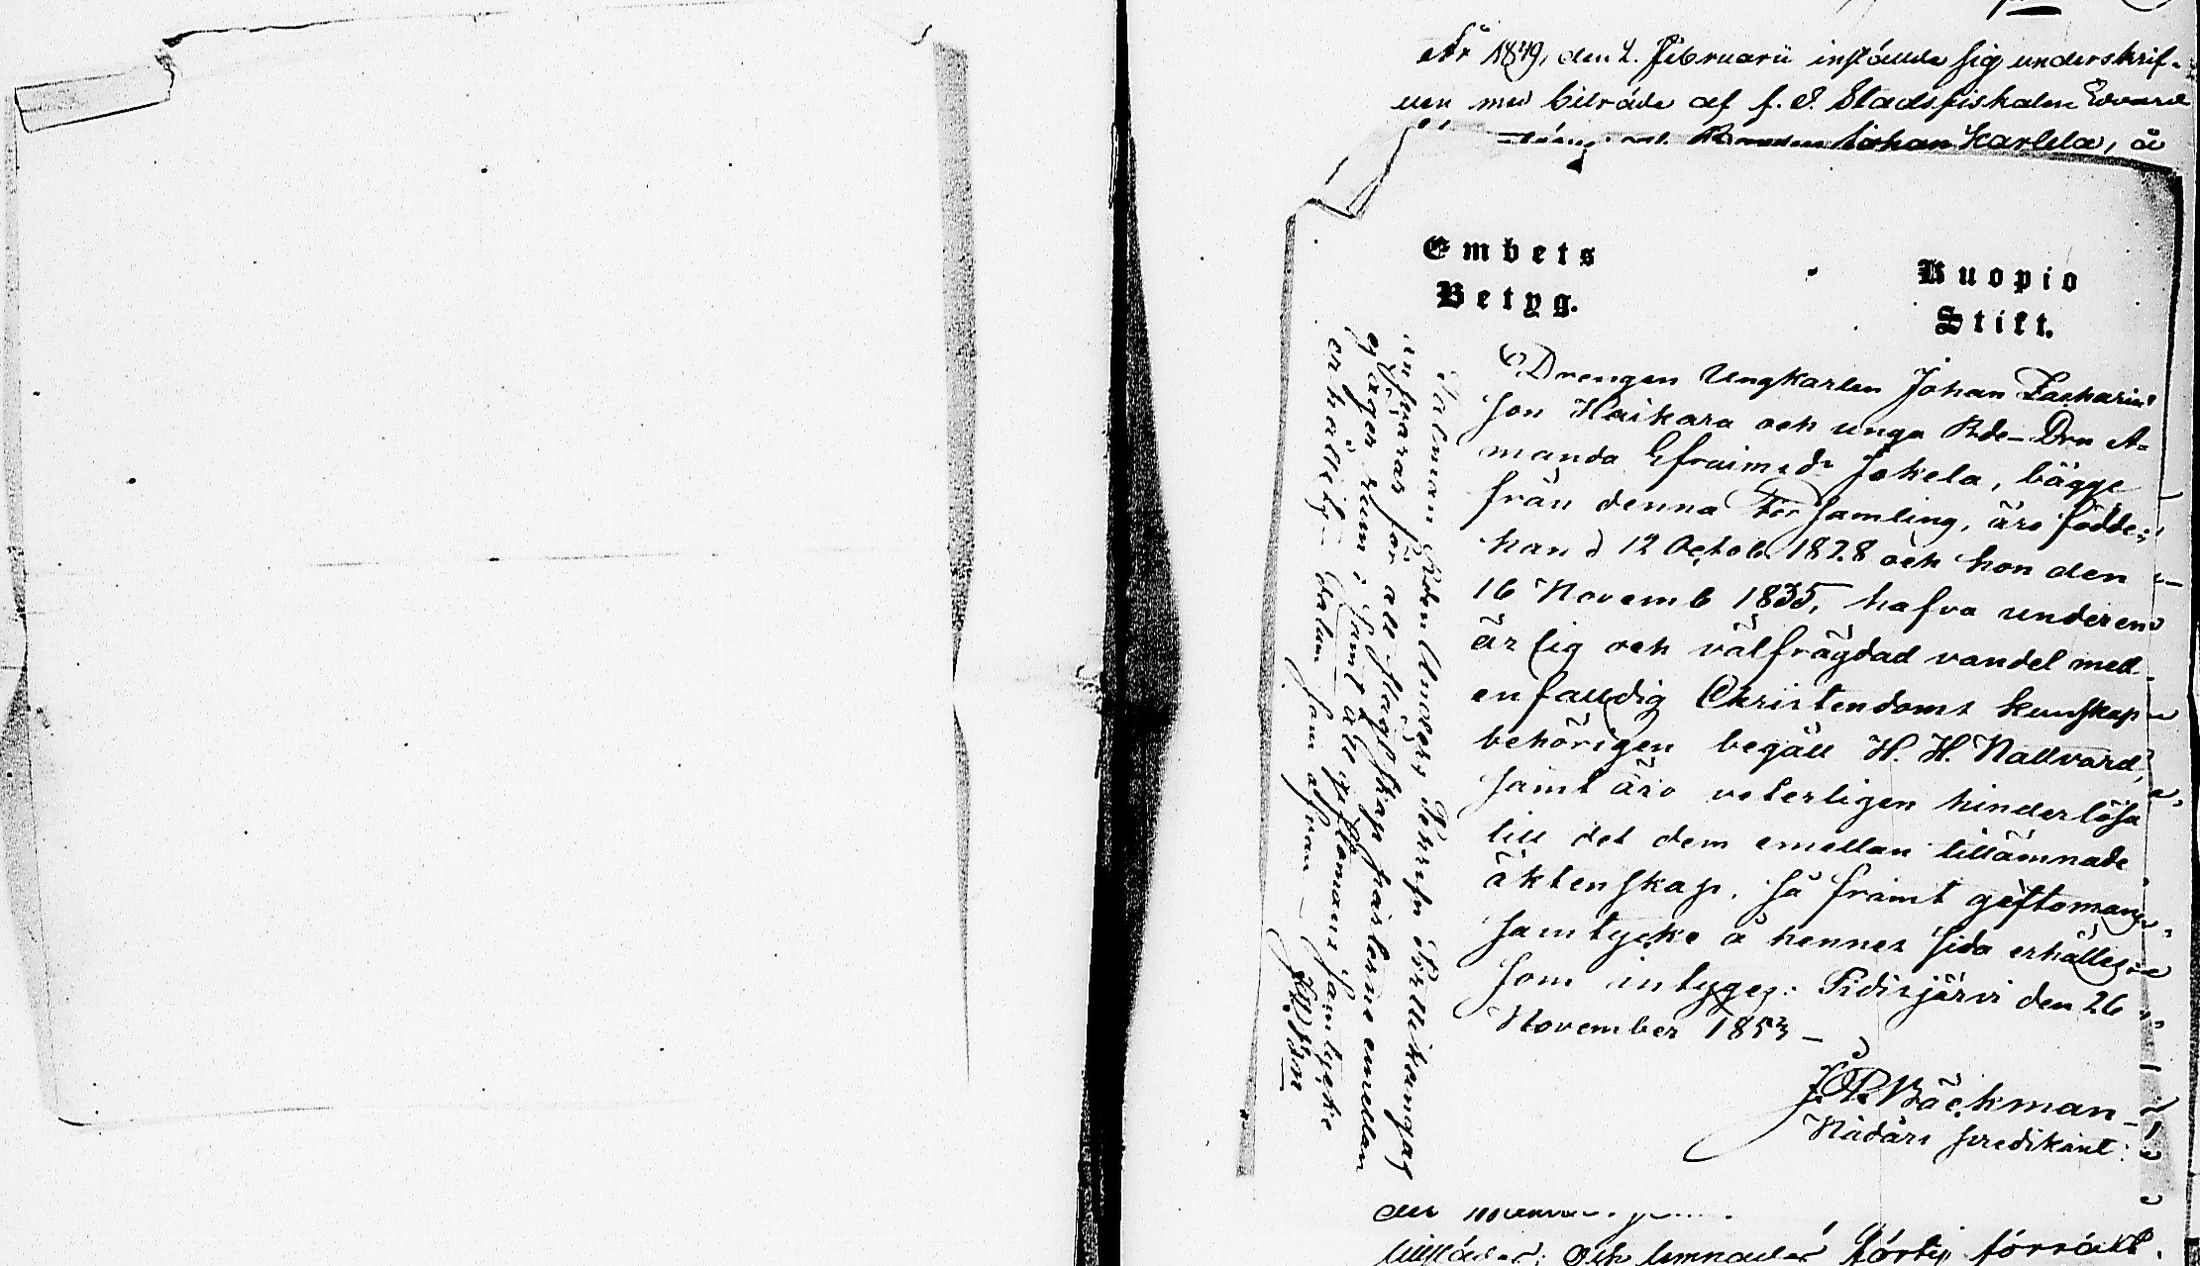 År 1879, den 4. Februarii inställde sig underskrif-
ven med biträde af f. d. Stadsfiskalen Edvard
Johan Karlela, å
Embets
Betyg.
Kuopio
Stift.
Drengen Ungkarlen Johan Zacharias
son Haikara och unga Bde-Drn A-
manda Efraimsdr Jokela, bägge
från denna Församling, äro födde;
han d 12 Octob. 1828 och hon den
16 Novemb 1835, hafva under en
ärlig och välfrägdad vandel med
enfalldig Christendoms kunskap
behörigen begått H. H. Nattvard,
samt äro veterligen hinderlösa
till det dem emellan tillämnade
äktenskap, så framt giftomans
samtycke å hennes sida erhålles;
som intygas: Pidisjärvi den 26
November 1853 —
J. R. Bäckman
Nådårs predikant:
Talman Anders
ansvarar för all slags skap parterne emellan
ej äger rum; samt att giftomans samtycke
erhållits; Datum som ofvan —
tillstånd; och lemnades